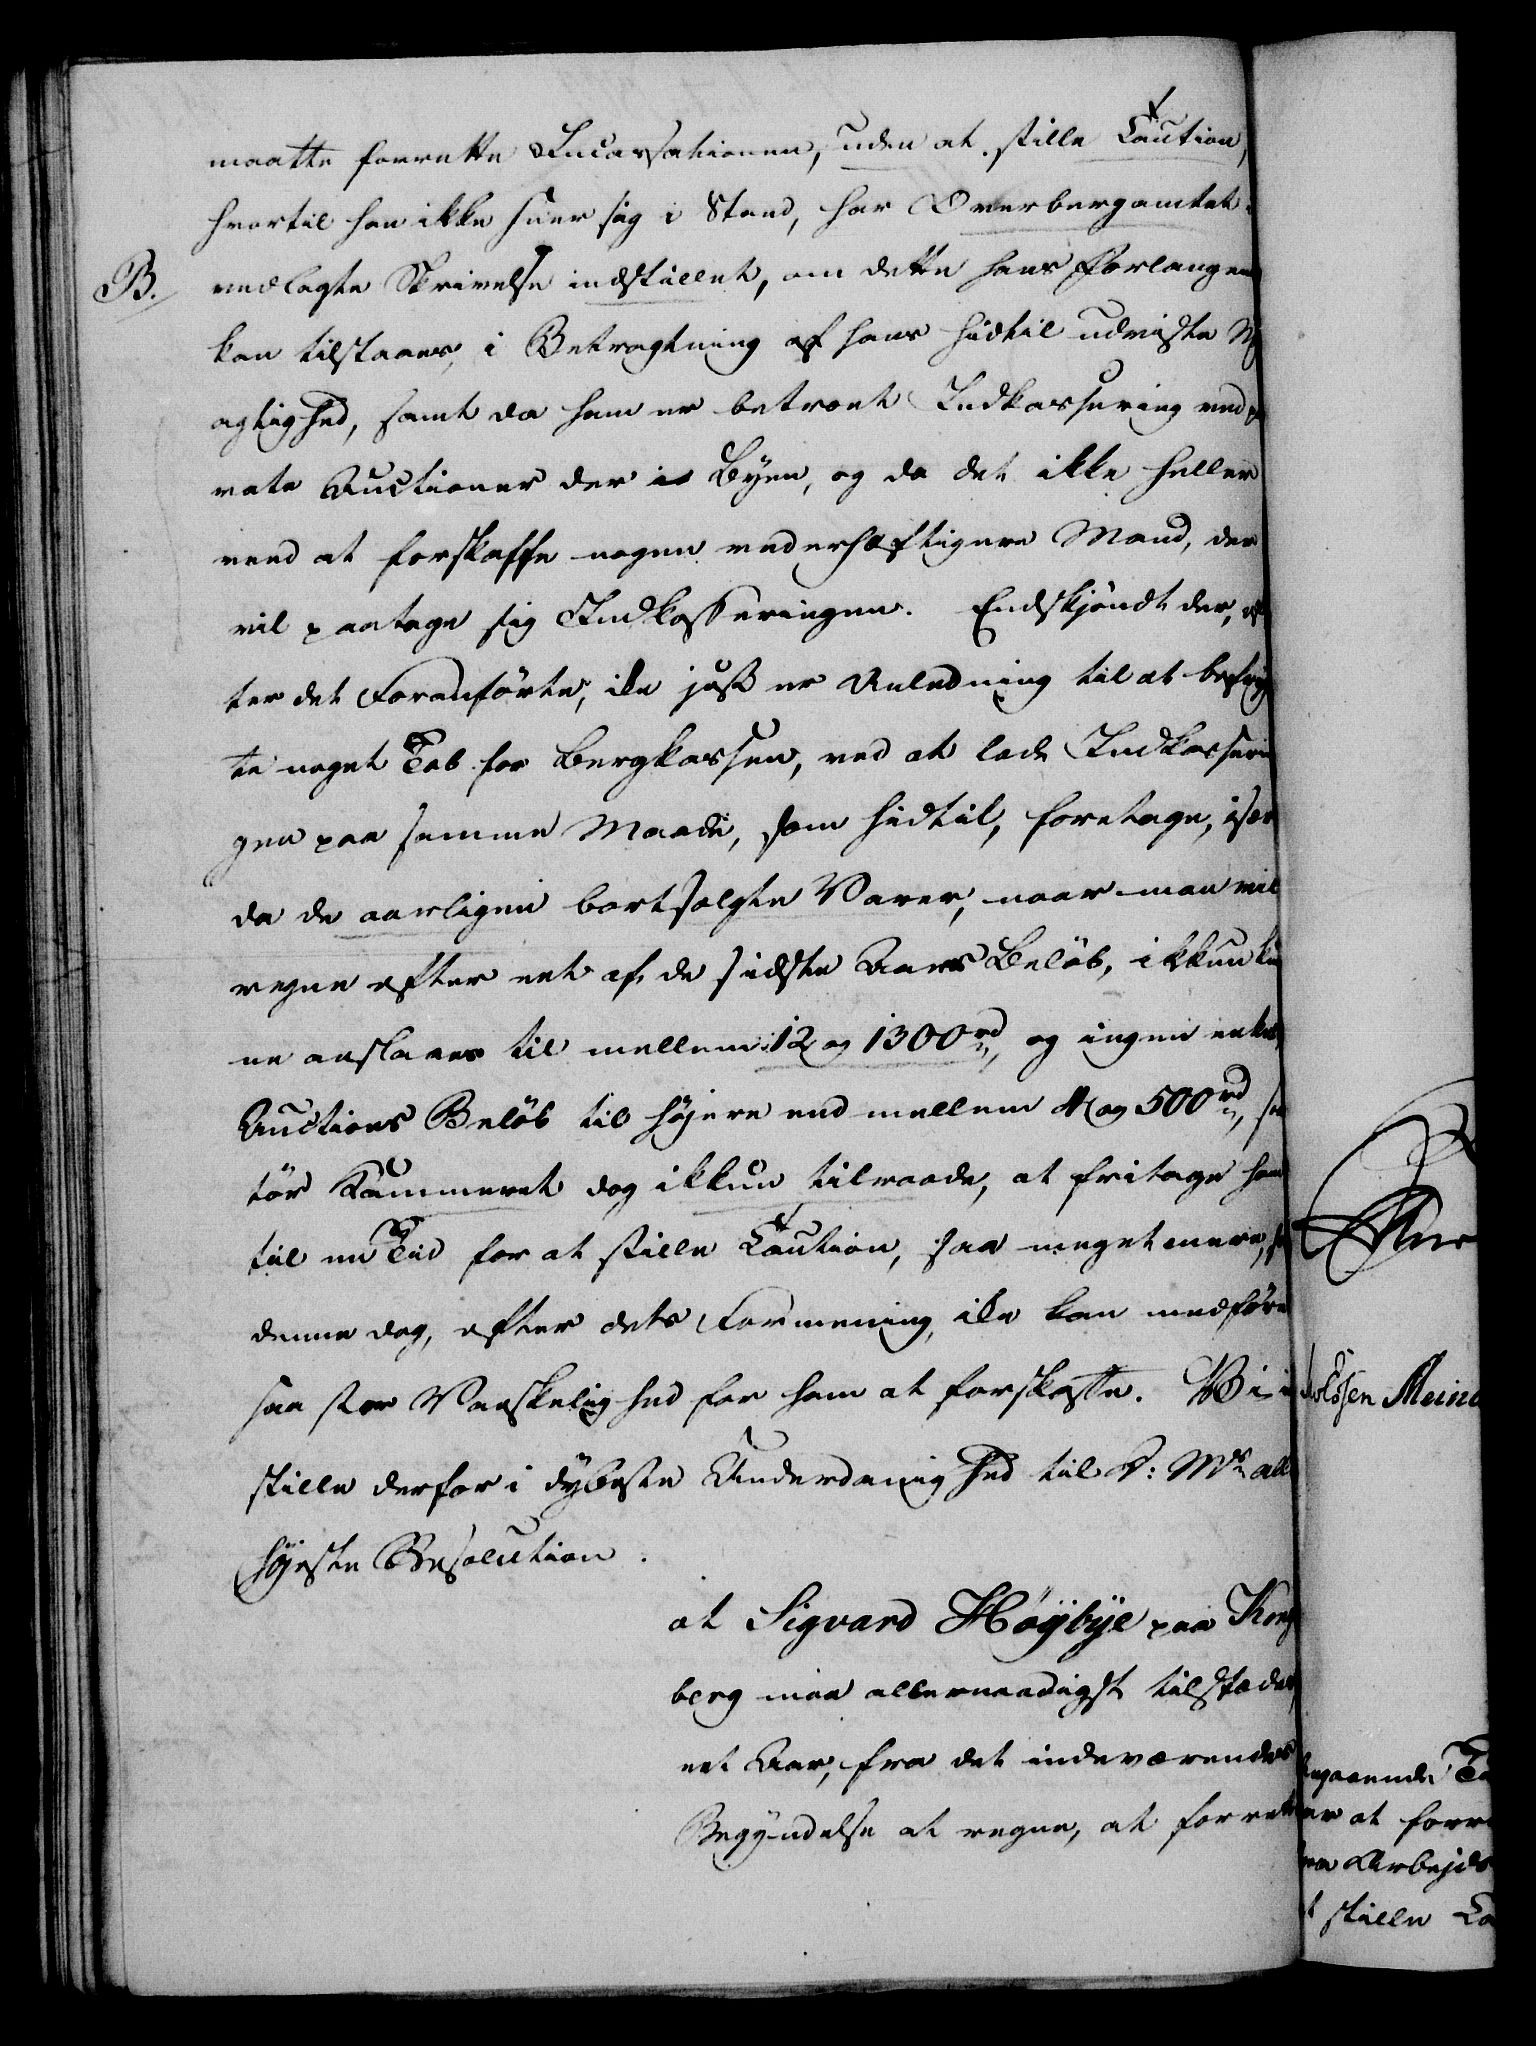 maatte forrette Incassationen, uden at stille Caution,
hvortil han ikke seer sig i Stand, har Overbergamtet i
B. vedlagte Skrivelse indstillet, om dette hans Forlangen
kan tilstaaes, i Betragtning af hans hidtil udviste
agtighed, samt da ham er betroet Indkassering ved
vate Auctioner der i Byen, og da det ikke heller
veed at forskaffe nogen vederhæftigere Mand, der
vil paatage sig Indkasseringen. Endskjöndt der, ef
ter det Foranförte, ikke just er Anledning til at befryg
te noget Tab for Bergkassen, ved at lade Indkasserin
gen paa samme Maade, som hidtil, foretage, især
da de aarligen bortsolgte Varer, naar man vil
regne efter eet af de sidste Aars Belöb, ikkun kun
ne anslaaes til mellem 12 og 1300 rd, og ingen enkelt
Auctions Belöb til höjere end mellem 4 og 500 rd, saa
tör Kammeret dog ikkun tilraade, at fritage ham
til en Tid for at stille Caution, saa meget mere, som
denne dog, efter dets Formening, ikke kan medföre
saa stor Vanskelighed for ham at forskaffe. Vi i
stille derfor i dybeste Underdanighed til D: Mts aller
höjeste Resolution.
at Sigvard Höybye paa Kongs
berg maa allernaadigst tilstædes,
eet Aar, fra det indeværendes
Begyndelse at regne, at forrette
olssen Mein
gaaende
er at forre
Arbejds
stille Ca